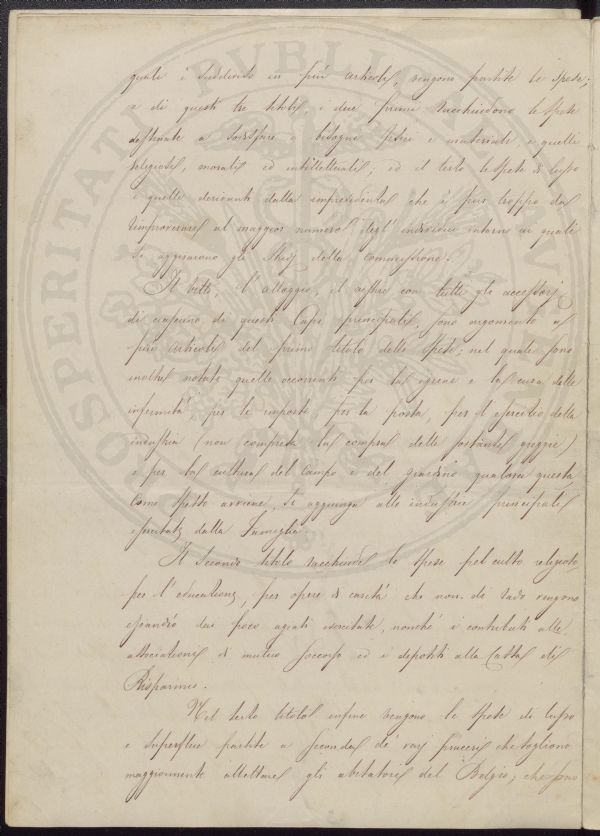 quale è suddiviso in più articoli, vengono partite le spese;
e di questi tre titoli, i due primi racchiudono le spese
destinate a soddisfare a bisogni fisici e materiali, e quelli
religiosi, morali ed intellettuali; ed il terzo le spese di lusso
e quelle derivanti dalla imprevidenza che è pur troppo da
rimproverarsi al maggior numero degl' individui intorno ai quali
si aggiravano gli studj della commissione.
Il vitto, l'alloggio, il vestire con tutti gli accessorj
di ciascuno di questi Capi principali, sono argomento a
più articoli del primo titolo delle spese; nel quale sono
inoltre notate quelle occorrenti per la igiene e la cura delle
infermità per le imposte, per la posta, per l'esercizio della
industria (non compresa la compra delle sostanze greggie)
e per la cultura del campo e del giardino qualora questa
come spesso avviene, si aggiunga alle industrie principali
esercitate dalla Famiglia.
Il secondo titolo racchiude le spese pel culto religioso,
per l'educazione, per opere di carità che non di rado vengono
eziandio dai poco agiati esercitate, nonchè i contributi alle
associazioni di mutuo soccorso ed i depositi alla Cassa di
Risparmio.
Nel terzo titolo infine vengono le spese di lusso
e superflue partite a seconda de' varj piaceri che sogliono
maggiormente allettare gli abitatori del Belgio; che sono
PROSPERITATI PVBLICAE AVGENDAE